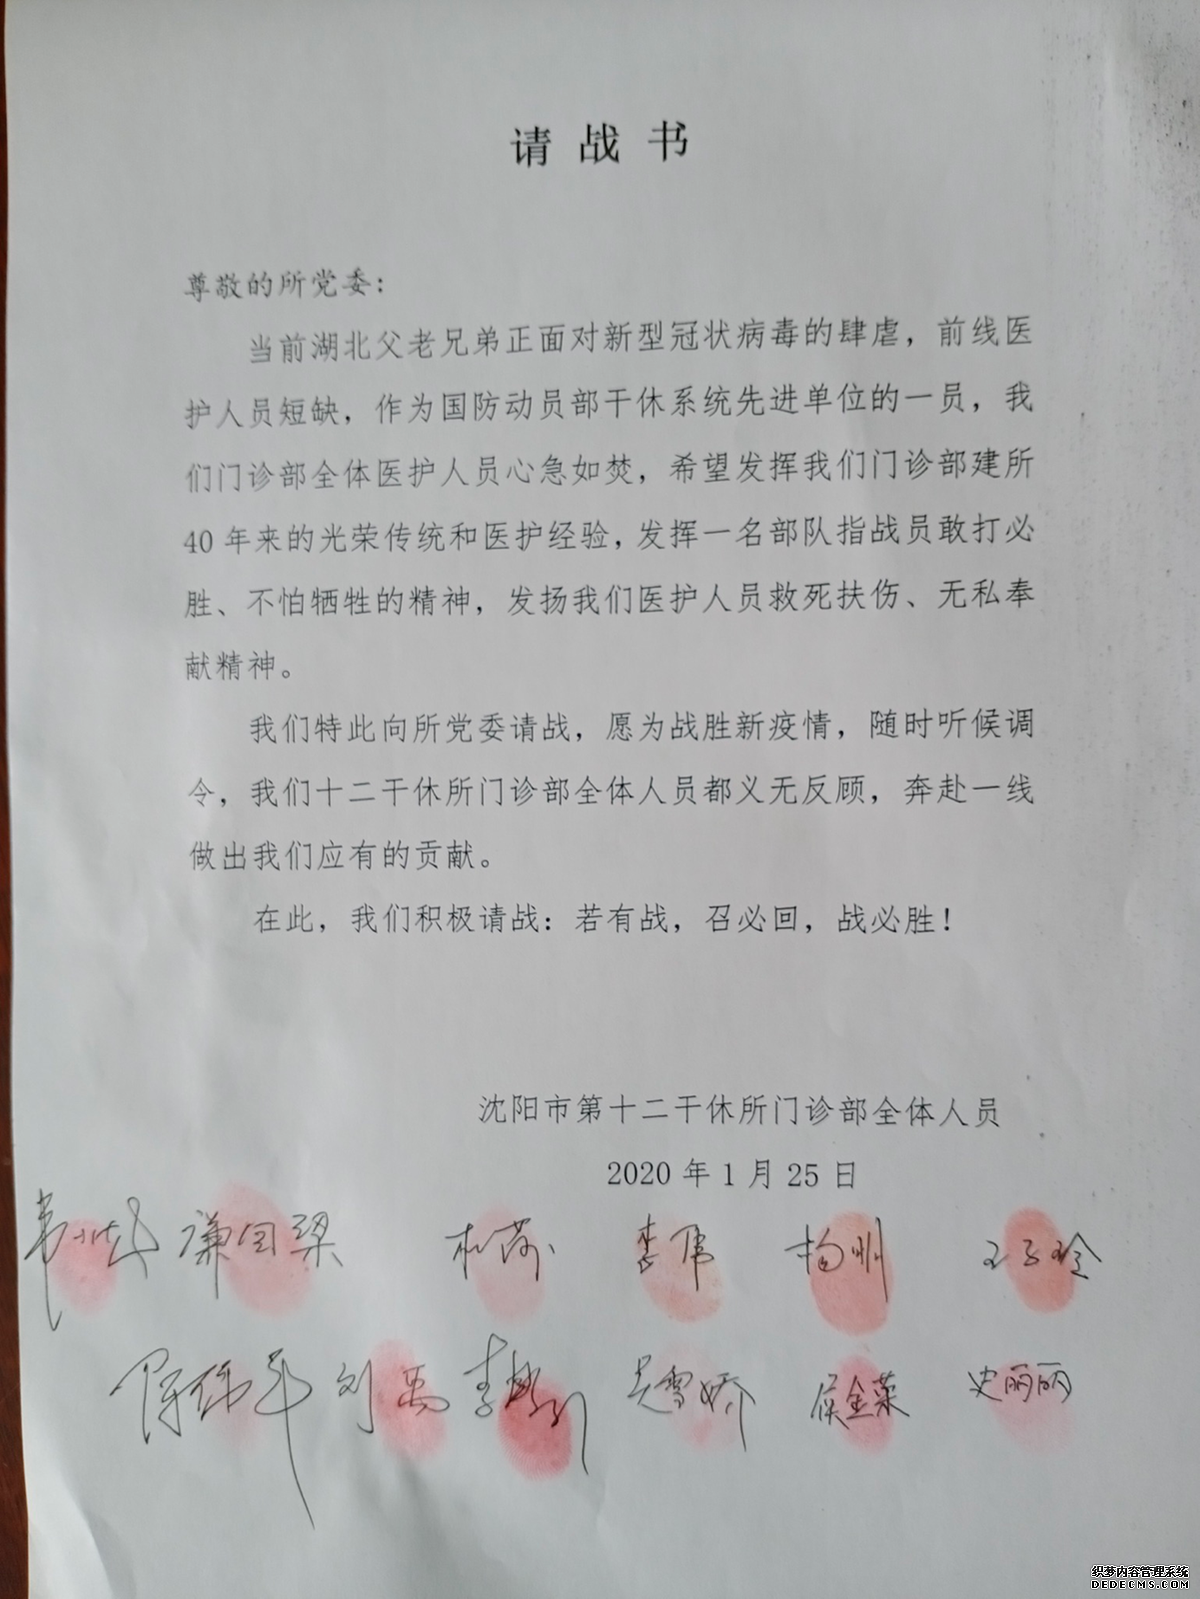 请战书
尊敬的所党委：
当前湖北父老兄弟正面对新型冠状病毒的肆虐，前线医
护人员短缺，作为国防动员部干休系统先进单位的一员，我
们门诊部全体医护人员心急如焚，希望发挥我们门诊部建所
40年来的光荣传统和医护经验，发挥一名部队指战员敢打必
胜、不怕牺牲的精神，发扬我们医护人员救死扶伤、无私奉
献精神。
我们特此向所党委请战，愿为战胜新疫情，随时听候调
令，我们十二干休所门诊部全体人员都义无反顾，奔赴一线
做出我们应有的贡献。
在此，我们积极请战：若有战，召必回，战必胜！
沈阳市第十二干休所门诊部全体人员
2020年1月25日
李伟 杨刚
刘禹 吴雪娇 侯金菜 史丽丽
织梦内容管理系统
DEDECMS.COM